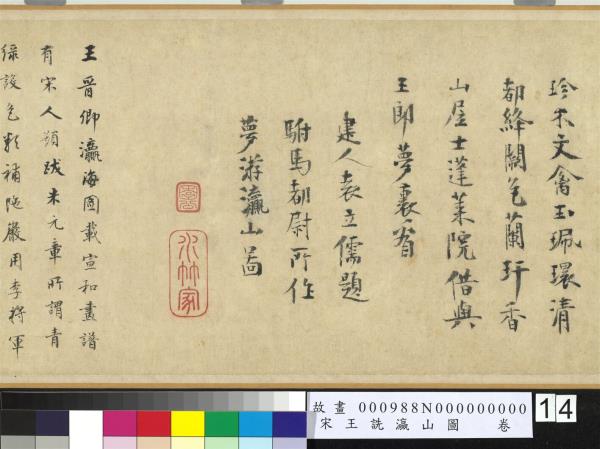 珍木文禽玉珮環清
都絳闕芝蘭玕香
山居士蓬萊院借與
王郎夢裏看
建人袁立儒題
駙馬都尉所作
夢游瀛山啚
水竹家
王晉卿瀛海圖載宣和畫譜
有宋人題跋米元章所謂青
綠設色
補陀巖用李將軍
故畫 000988N000000000
宋王詵瀛山圖 卷
14